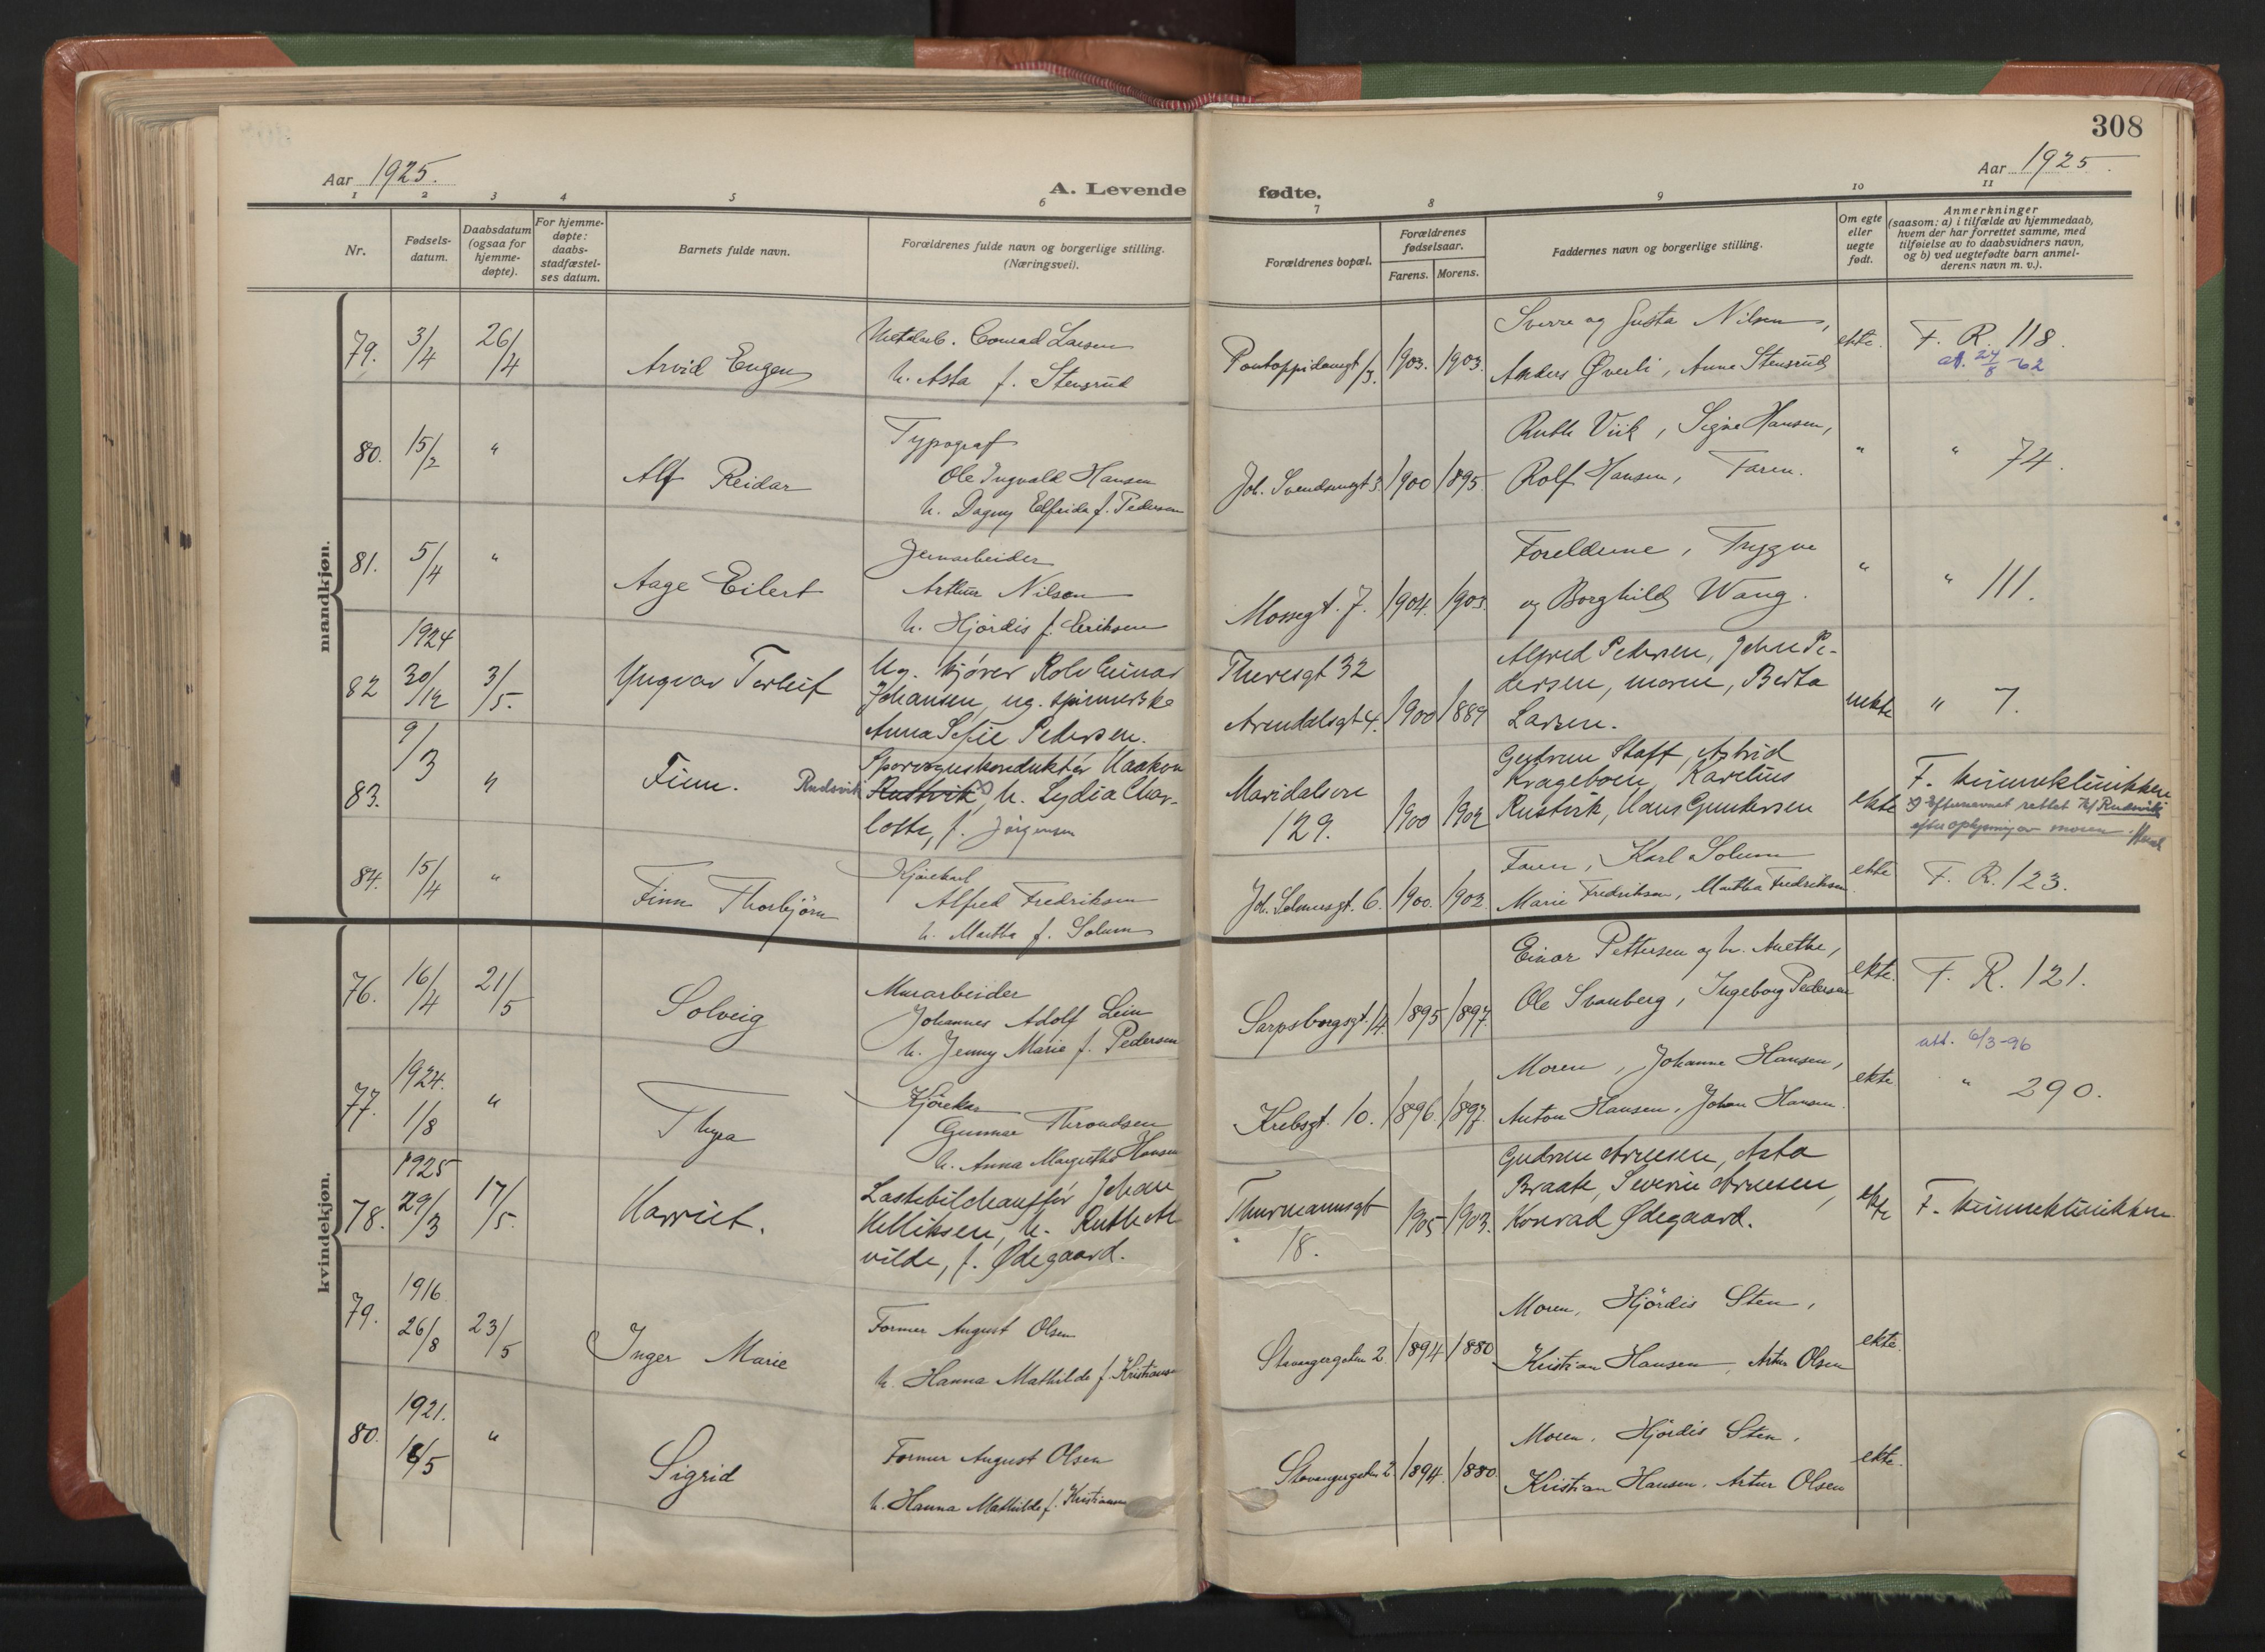 308
Aar 1925.
A. Levende fødte.
Aar 1925.
1 2 3 4 5 6 7 8 9 10 11
Nr.
Fødsels-
datum.
Daabsdatum
(ogsaa for
hjemme-
døpte).
For hjemme-
døpte:
daabs-
stadfæstel-
ses datum.
Barnets fulde navn.
Forældrenes fulde navn og borgerlige stilling.
(Næringsvei).
Forældrenes bopæl.
Forældrenes
fødselsaar.
Farens. Morens.
Faddernes navn og borgerlige stilling.
Om egte
eller
uegte
født.
Anmerkninger
(saasom: a) i tilfælde av hjemmedaab,
hvem der har forrettet samme, med
tilføielse av to daabsvidners navn,
og b) ved uegtefødte barn anmel-
derens navn m. v.).
mandkjøn.
79. 3/4 26/4
Arvid Eugen
Metalarb. Conrad Larsen
h. Asta f. Stensrud
Pontoppidansgt 13. 1903. 1903.
Sverre og Gusta Nilsen,
Anders Øverli, Anna Stensrud
ekte.
F. R. 118.
att. 24/8 -62
80. 15/2 "
Alf Reidar
Typograf
Ole Ingvald Hansen
h. Dagny Elfrida f. Pedersen
Joh. Svendsensgt 3. 1900 1895.
Ruth Viik, Signe Hansen,
Rolf Hansen, Faren.
"
" 74.
81. 5/4 "
Aage Eilert
Jernarbeider
Arthur Nilsen
h. Hjördis f. Eriksen
Mossegt. 7. 1904. 1903.
Foreldrene, Trygve
og Borghild Wang.
"
" 111.
82 1924
30/12 3/5.
Yngvar Torleif
Ug. kjører Rolv Einar
Johansen, ug. spinnerske
Anna Sofie Pedersen.
Theresgt 32
Arendalsgt 4. 1900 1889
Alfred Pedersen, John Pe-
dersen, moren, Berta
Larsen.
uekte
" 7.
83. 9/3 "
Finn.
Rudsvik
Sporvognskonduktør Haakon
Rustvik x), h. Lydia Char-
lotte, f. Jörgensen
Maridalsvn
129. 1900 1902
Gudrun Staff, Astrid
Krageboen, Karelius
Rustvik, Hans Gundersen
ekte
F. kvinneklinikken
x) Efternavnet rettet til Rudsvik
efter oplysning av moren.
84. 15/4 "
Finn Thorbjörn
Kjörekarl
Alfred Fredriksen
h. Martha f. Solum
Joh. Selmersgt. 6. 1900. 1902.
Faren, Karl Solum
Marie Fredriksen, Martha Fredriksen
ekte
F. R. 123.
kvindekjøn.
76. 16/4 21/5
Solveig
Murarbeider
Johannes Adolf Lein
h. Jenny Marie f. Pedersen
Sarpsborgsgt. 14. 1895 1897.
Einar Pettersen og h. Anethe,
Ole Svanberg, Ingeborg Pedersen
ekte.
F. R. 121.
att. 6/3-96
77. 1924.
1/8 "
Thyra
Kjörekar
Gunnar Throndsen
h. Anna Margrethe Hansen
Krebsgt. 10. 1896. 1897.
Moren, Johanne Hansen,
Anton Hansen, Johan Hansen.
ekte
" 290.
78. 1925
29/3 17/5.
Harriet.
Lastebilchauffør Johan
Helliksen, h. Ruth Al-
vilde, f. Ødegaard.
Thurmannsgt
18. 1905 1903.
Gudrun Arnesen, Asta
Braate, Severin Arnesen,
Konrad Ødegaard.
ekte
F. kvinneklinikken
79. 1916.
26/8 23/5
Inger Marie
Former August Olsen
h. Hanna Mathilde f. Kristiansen
Stavangergaten 2. 1894 1880
Moren, Hjördis Sten,
Kristian Hansen, Artur Olsen
ekte.
80. 1921.
18/5 "
Sigrid
Former August Olsen
h. Hanna Mathilde f. Kristiansen
Stavangergaten 2 1894. 1880.
Moren, Hjördis Sten,
Kristian Hansen, Artur Olsen
ekte.